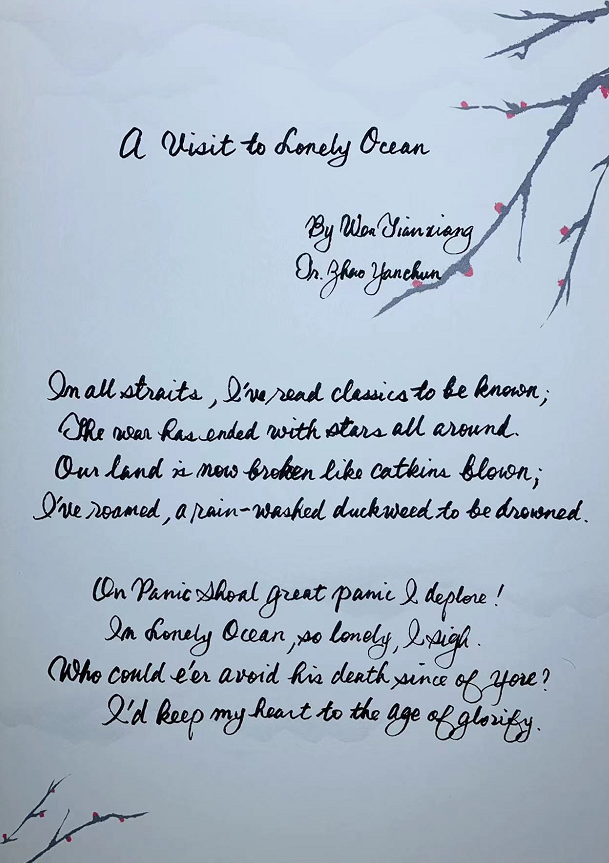 A Visit to Lonely Ocean
By Wen Tianxiang
Tr. Zhao Yanchun
In all straits, I've read classics to be known;
The war has ended with stars all around.
Our land is now broken like catkins blown;
I've roamed, a rain-washed duckweed to be drowned.
On Panic Shoal great panic I deplore!
In Lonely Ocean, so lonely, I sigh.
Who could e'er avoid his death since of yore?
I'd keep my heart to the age of glorify.